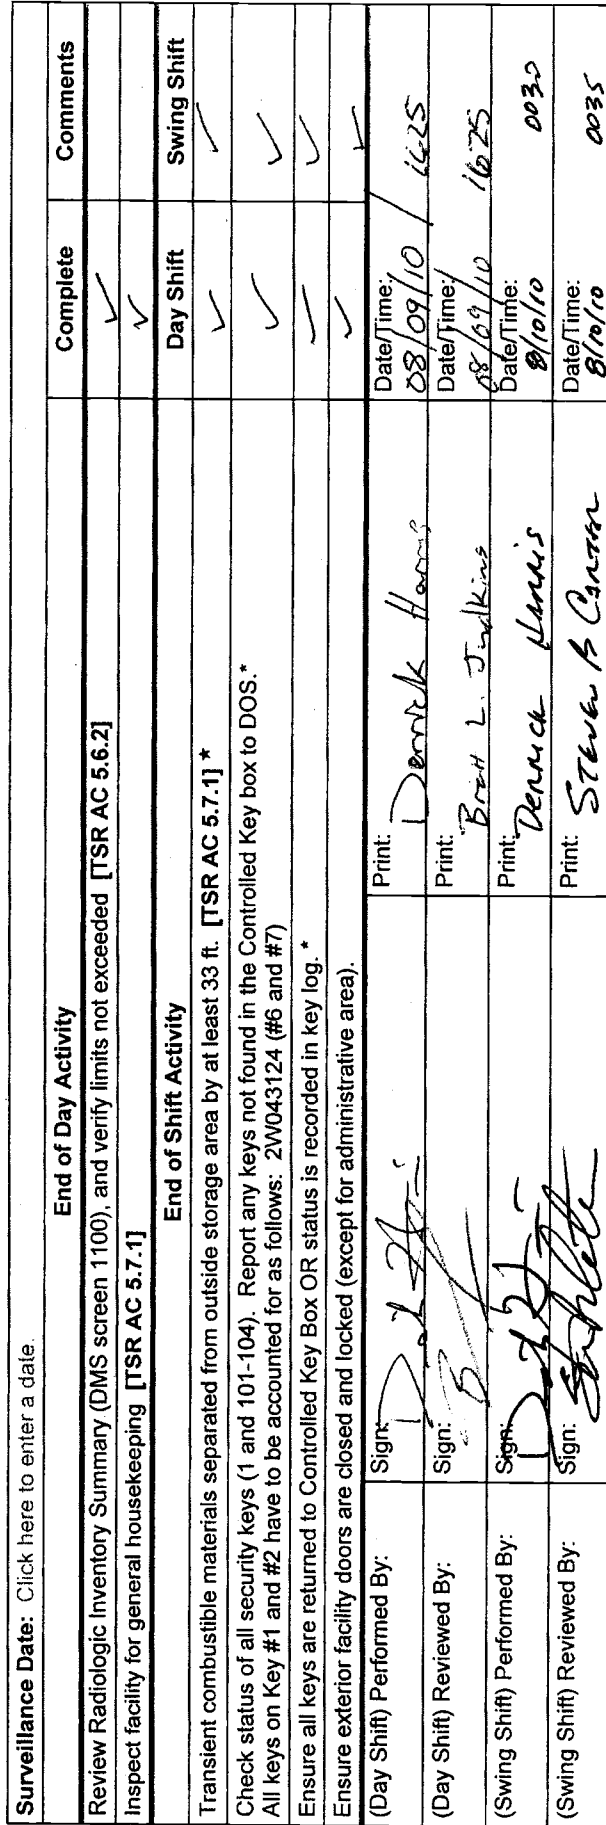 Surveillance Date: Click here to enter a date.
End of Day Activity Complete Comments
Review Radiologic Inventory Summary (DMS screen 1100), and verify limits not exceeded [TSR AC 5.6.2] ✓
Inspect facility for general housekeeping [TSR AC 5.7.1] ✓
End of Shift Activity Day Shift Swing Shift
Transient combustible materials separated from outside storage area by at least 33 ft. [TSR AC 5.7.1] * ✓ ✓
Check status of all security keys (1 and 101-104). Report any keys not found in the Controlled Key box to DOS.* ✓ ✓
All keys on Key #1 and #2 have to be accounted for as follows: 2W043124 (#6 and #7)
Ensure all keys are returned to Controlled Key Box OR status is recorded in key log.* ✓ ✓
Ensure exterior facility doors are closed and locked (except for administrative area). ✓ ✓
(Day Shift) Performed By: Sign: Print: Derrick Harris Date/Time: 08/09/10 / 1625
(Day Shift) Reviewed By: Sign: Print: L. Judkins Date/Time: 08/09/10 1625
(Swing Shift) Performed By: Sign: Print: Derrick Harris Date/Time: 8/10/10 0030
(Swing Shift) Reviewed By: Sign: Print: Steven B Carter Date/Time: 8/10/10 0035